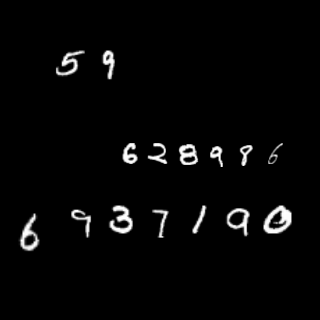 59
628986
6937190